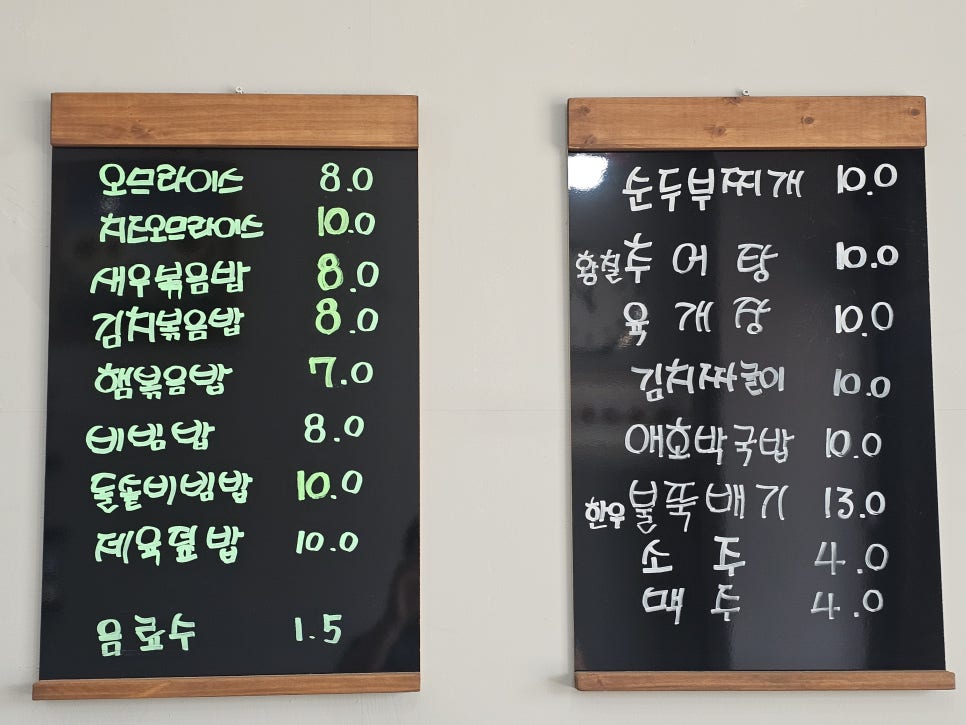 오므라이스 8.0
치즈오므라이스 10.0
새우볶음밥 8.0
김치볶음밥 8.0
햄볶음밥 7.0
비빔밥 8.0
돌솥비빔밥 10.0
제육덮밥 10.0
음료수 1.5
순두부찌개 10.0
황칠추어탕 10.0
육개장 10.0
김치짜글이 10.0
애호박국밥 10.0
한우불뚝배기 13.0
소주 4.0
맥주 4.0